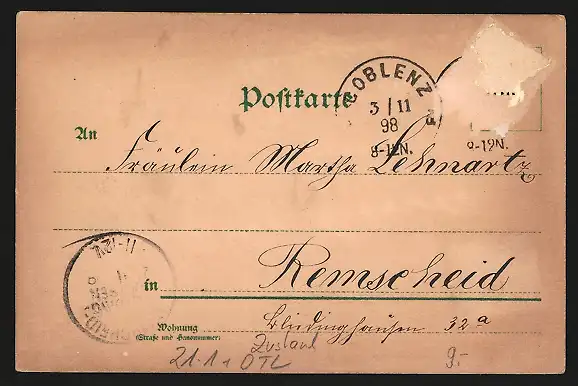 COBLENZ
3/11
98
8-12N.
8-12N.
Postkarte
An
Fräulein Martha Lehnartz
11-12V.
in Remscheid
Wohnung
(Straße und Hausnummer)
Bliedinghausen 32a
21.1 + Zustand
OTL
9.-